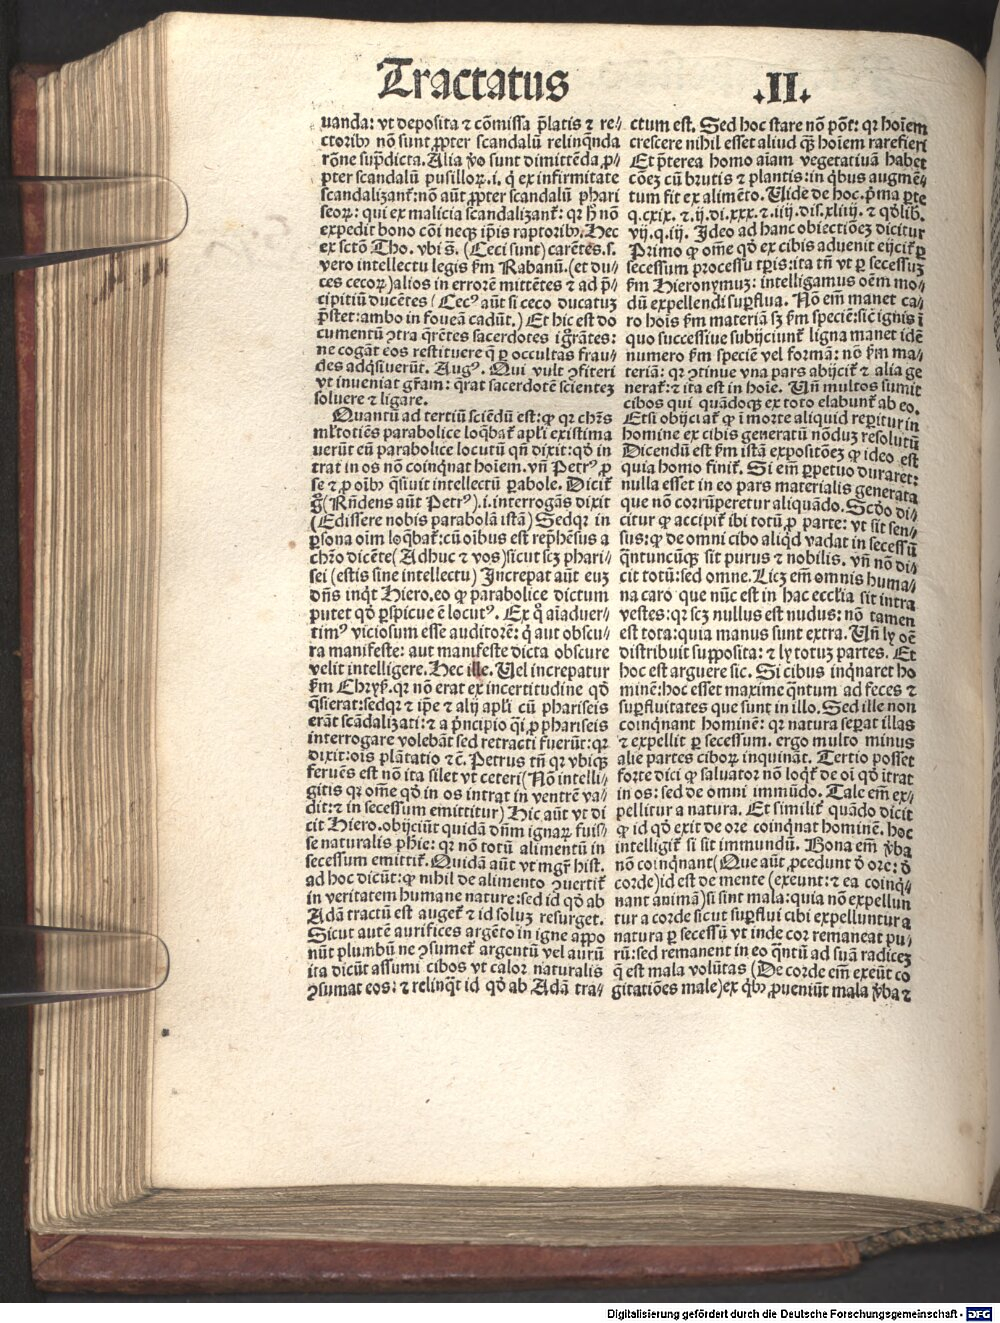 Tractatus .II.
uanda: vt deposita ⁊ cōmissa p̄latis ⁊ re⸗
ctorib⁹ nō sunt ꝓpter scandalū relinq̄nda
rōne sup̄dicta. Alia ṽo sunt dimittēda ꝓ⸗
pter scandalū pusilloꝝ .i. q̇ ex infirmitate
scandalizant᷑: nō aūt ꝓpter scandalū phari
seoꝝ: qui ex malicia scandalizant᷑: qꝛ h̄ nō
expedit bono cōi neqꝫ ip̄is raptorib⁹. Hec
ex sctō Tho. vbi s̄. (Ceci sunt) carētes .s.
vero intellectu legis ẜm Rabanū. (et du⸗
ces cecoꝝ) alios in errorē mittētes ⁊ ad p̄⸗
cipitiū ducētes (Cec⁹ aūt si ceco ducatuꝫ
p̄stet: ambo in foueā cadūt.) Et hic est do
cumentū ꝯtra q̄rētes sacerdotes igrātes:
ne cogāt eos restituere q̄ ꝑ occultas frau⸗
des adq̇siuerūt. Aug⁹. Qui vult ꝯfiteri
vt inueniat gr̄am: q̄rat sacerdotē scienteꝫ
soluere ⁊ ligare.
Quantū ad tertiū sciēdū est: ꝙ qꝛ chr̄s
ml̄totiēs parabolice loq̄bat᷑ apl̄i existima
uerūt eū parabolice locutū qn̄ dixit: qd̓ in
trat in os nō coinq̇nat hoīem. vn̄ Petr⁹ ꝓ
se ⁊ ꝓ oīb⁹ q̄siuit intellectū ꝑabole. Dicit᷑
g̊ (Rn̄dens aūt Petr⁹) .i. interrogās dixit
(Edissere nobis parabolā istā) Sed qꝛ in
ꝑsona oīm loq̄bat᷑: cū oībus est rep̄hēsus a
chr̄o dicēte (Adhuc ⁊ vos) sicut scꝫ phari⸗
sei (estis sine intellectu) Increpat aūt euꝫ
dn̄s inq̇t Hiero. eo ꝙ parabolice dictum
putet qd̓ ꝑspicue ē locut⁹. Ex q̊ aīaduer⸗
tim⁹ viciosum esse auditorē: q̇ aut obscu⸗
ra manifeste: aut manifeste dicta obscure
velit intelligere. Hec ille. Uel increpatur
ẜm Chryꝭ. qꝛ nō erat ex incertitudine qd̓
q̄sierat: sed qꝛ ⁊ ip̄e ⁊ alij apl̄i cū phariseis
erāt scādalizati: ⁊ a p̄ncipio q̄i ꝓ phariseis
interrogare volebāt sed retracti fuerūt: qꝛ
dixit: oīs plātatio ⁊ c̄. Petrus tn̄ qꝛ vbiqꝫ
feruēs est nō ita silet vt ceteri (Nō intelli⸗
gitis qꝛ om̄e qd̓ in os intrat in ventrē va⸗
dit: ⁊ in secessum emittitur) Hic aūt vt di
cit Hiero. obijciūt quidā dn̄m ignaꝝ fuis⸗
se naturalis ph̄ie: qꝛ nō totū alimentū in
secessum emittit᷑. Quidā aūt vt mgr̄ hist.
ad hoc dicūt: ꝙ nihil de alimento ꝯuertit᷑
in veritatem humane nature: sed id qd̓ ab
Adā tractū est auget᷑ ⁊ id soluꝫ resurget.
Sicut autē aurifices argēto in igne appo
nūt plumbū ne ꝯsumet᷑ argentū vel aurū
ita dicūt assumi cibos vt calor naturalis
ꝯsumat eos: ⁊ relinq̄t id qd̓ ab Adā tra⸗
ctum est. Sed hoc stare nō pōt: qꝛ hoīem
crescere nihil esset aliud qꝫ̄ hoīem rarefieri
Et p̄terea homo aīam vegetatiuā habet
cōeꝫ cū brutis ⁊ plantis: in q̇bus augmē⸗
tum fit ex alimēto. Uide de hoc. p̄ma ꝑte
q. cxix. ⁊ .ij. di. xxx. ⁊ .iiij. dis. xliiij. ⁊ qd̓lib.
vij. q. iij. Ideo ad hanc obiectiōeꝫ dicitur
Primo ꝙ om̄e qd̓ ex cibis aduenit eijcit᷑ ꝑ
secessum processu tꝑis: ita tn̄ vt ꝑ secessuꝫ
ẜm Hieronymuꝫ: intelligamus oēm mo⸗
dū expellendi suꝑflua. Nō em̄ manet ca⸗
ro hoīs ẜm materiā sꝫ ẜm speciē: sic ignis ī
quo successiue subijciunt᷑ ligna manet idē
numero ẜm speciē vel formā: nō ẜm ma⸗
teriā: qꝛ ꝯtinue vna pars abijcit᷑ ⁊ alia ge
nerat᷑: ⁊ ita est in hoīe. Vn̄ multos sumit
cibos qui quādoqꝫ ex toto elabunt᷑ ab eo.
Etsi obijciat᷑ ꝙ ī morte aliquid reꝑitur in
homine ex cibis generatū nōduꝫ resolutū
Dicendū est ẜm istā expositōeꝫ ꝙ ideo est
quia homo finit᷑. Si em̄ perpetuo duraret:
nulla esset in eo pars materialis generata
que nō corrūperetur aliquādo. Scd̓o di⸗
citur ꝙ accipit᷑ ibi totū ꝓ parte: vt sit sen⸗
sus: ꝙ de omni cibo aliq̇d vadat in secessū
q̄ntuncūqꝫ sit purus ⁊ nobilis. vn̄ nō di⸗
cit totū: sed omne. Licꝫ em̄ omnis huma⸗
na caro que nūc est in hac eccl̄ia sit intra
vestes: qꝛ scꝫ nullus est nudus: nō tamen
est tota: quia manus sunt extra. Vn̄ ly oē
distribuit supposita: ⁊ ly totuꝫ partes. Et
hoc est arguere sic. Si cibus inq̇naret ho
minē: hoc esset maxime q̄ntum ad feces ⁊
suꝑfluitates que sunt in illo. Sed ille non
coinq̇nant hominē: qꝛ natura seꝑat illas
⁊ expellit ꝑ secessum. ergo multo minus
alie partes ciboꝝ inquināt. Tertio posset
forte dici ꝙ saluator nō loq̇t᷑ de oī qd̓ ītrat
in os: sed de omni immūdo. Tale em̄ ex⸗
pellitur a natura. Et similit᷑ quādo dicit
ꝙ id qd̓ exit de ore coinq̇nat hominē. hoc
intelligit᷑ si sit immundū. Bona em̄ ṽba
nō coinq̇nant (Que aūt ꝓcedunt d̓ ore: d̓
corde) id est de mente (exeunt: ⁊ ea coinq̇⸗
nant animā) si sint mala: quia nō expellun
tur a corde sicut suꝑflui cibi expelluntur a
natura ꝑ secessū vt inde cor remaneat pu⸗
rū: sed remanent in eo q̄ntū ad suā radiceꝫ
q̄ est mala volūtas (De corde em̄ exeūt co
gitatiōes male) ex q̇b⁹ ꝓueniūt mala ṽba ⁊
Digitalisierung gefördert durch die Deutsche Forschungsgemeinschaft - DFG